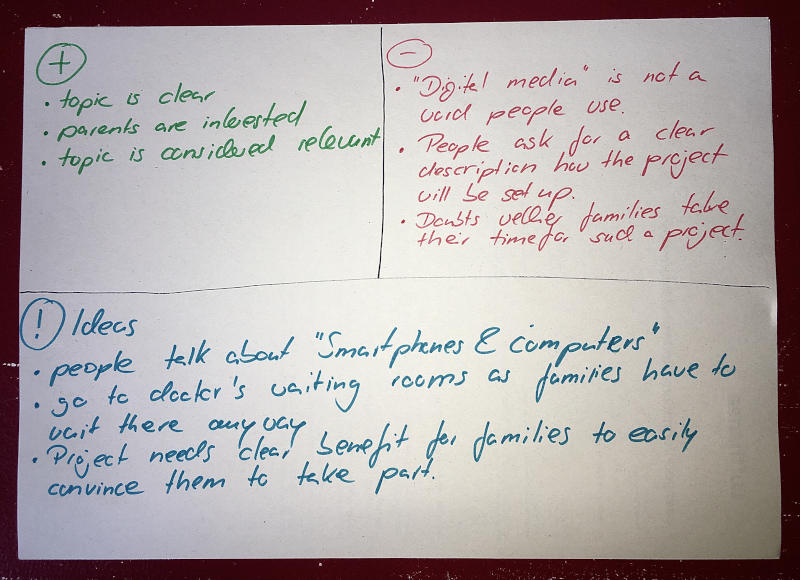 +
• topic is clear
• parents are interested
• topic is considered relevant
-
• "Digital media" is not a
word people use.
• People ask for a clear
description how the project
will be set up.
• Doubts wether families take
their time for such a project.
! Ideas
• people talk about "Smartphones & computers"
• go to doctor's waiting rooms as families have to
wait there anyway
• Project needs clear benefit for families to easily
convince them to take part.